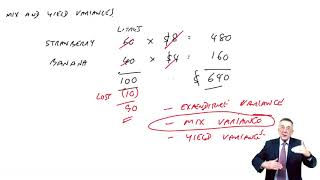 MIX AND YIELD VARIANCES
LITRES
STRAWBERRY 60 × $8 = 480
BANANA 40 × $4 = 160
100 $ 640
LOST (10)
90
- EXPENDITURE VARIANCE
- MIX VARIANCE
- YIELD VARIANCE